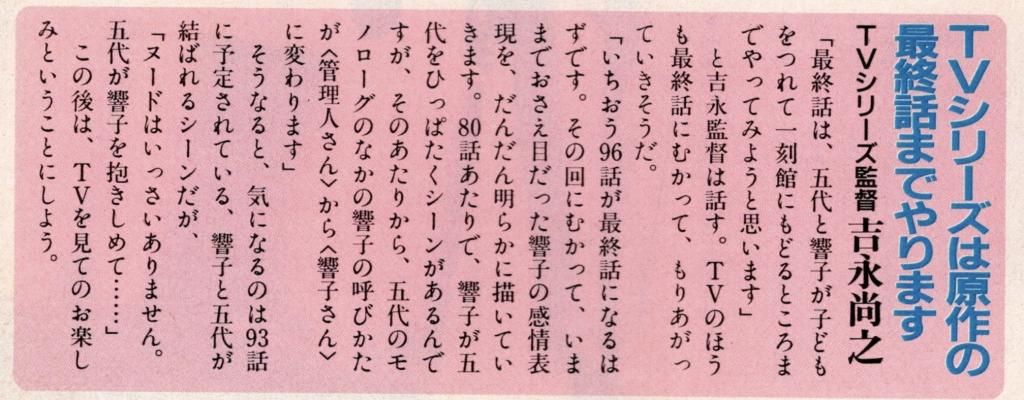 TVシリーズは原作の
最終話までやります
TVシリーズ監督 吉永尚之
「最終話は、五代と響子が子ども
をつれて一刻館にもどるところま
でやってみようと思います」
と吉永監督は話す。TVのほう
も最終話にむかって、もりあがっ
ていきそうだ。
「いちおう96話が最終話になるは
ずです。その回にむかって、いま
までおさえ目だった響子の感情表
現を、だんだん明らかに描いてい
きます。80話あたりで、響子が五
代をひっぱたくシーンがあるんで
すが、そのあたりから、五代のモ
ノローグのなかの響子の呼びかた
が〈管理人さん〉から〈響子さん〉
に変わります」
そうなると、気になるのは93話
に予定されている、響子と五代が
結ばれるシーンだが、
「ヌードはいっさいありません。
五代が響子を抱きしめて……」
この後は、TVを見てのお楽し
みということにしよう。